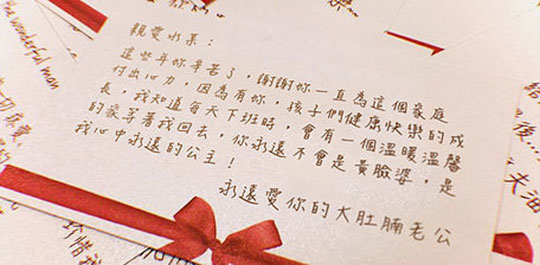 親愛水果：
這些年妳辛苦了，謝謝妳一直為這個家庭
付出心力，因為有妳，孩子們健康快樂的成
長，我知道每天下班時，會有一個溫暖溫馨
的家等著我回去，你永遠不會是黃臉婆，是
我心中永遠的公主！
永遠愛你的大肚腩老公
the wonderful man
珍惜我